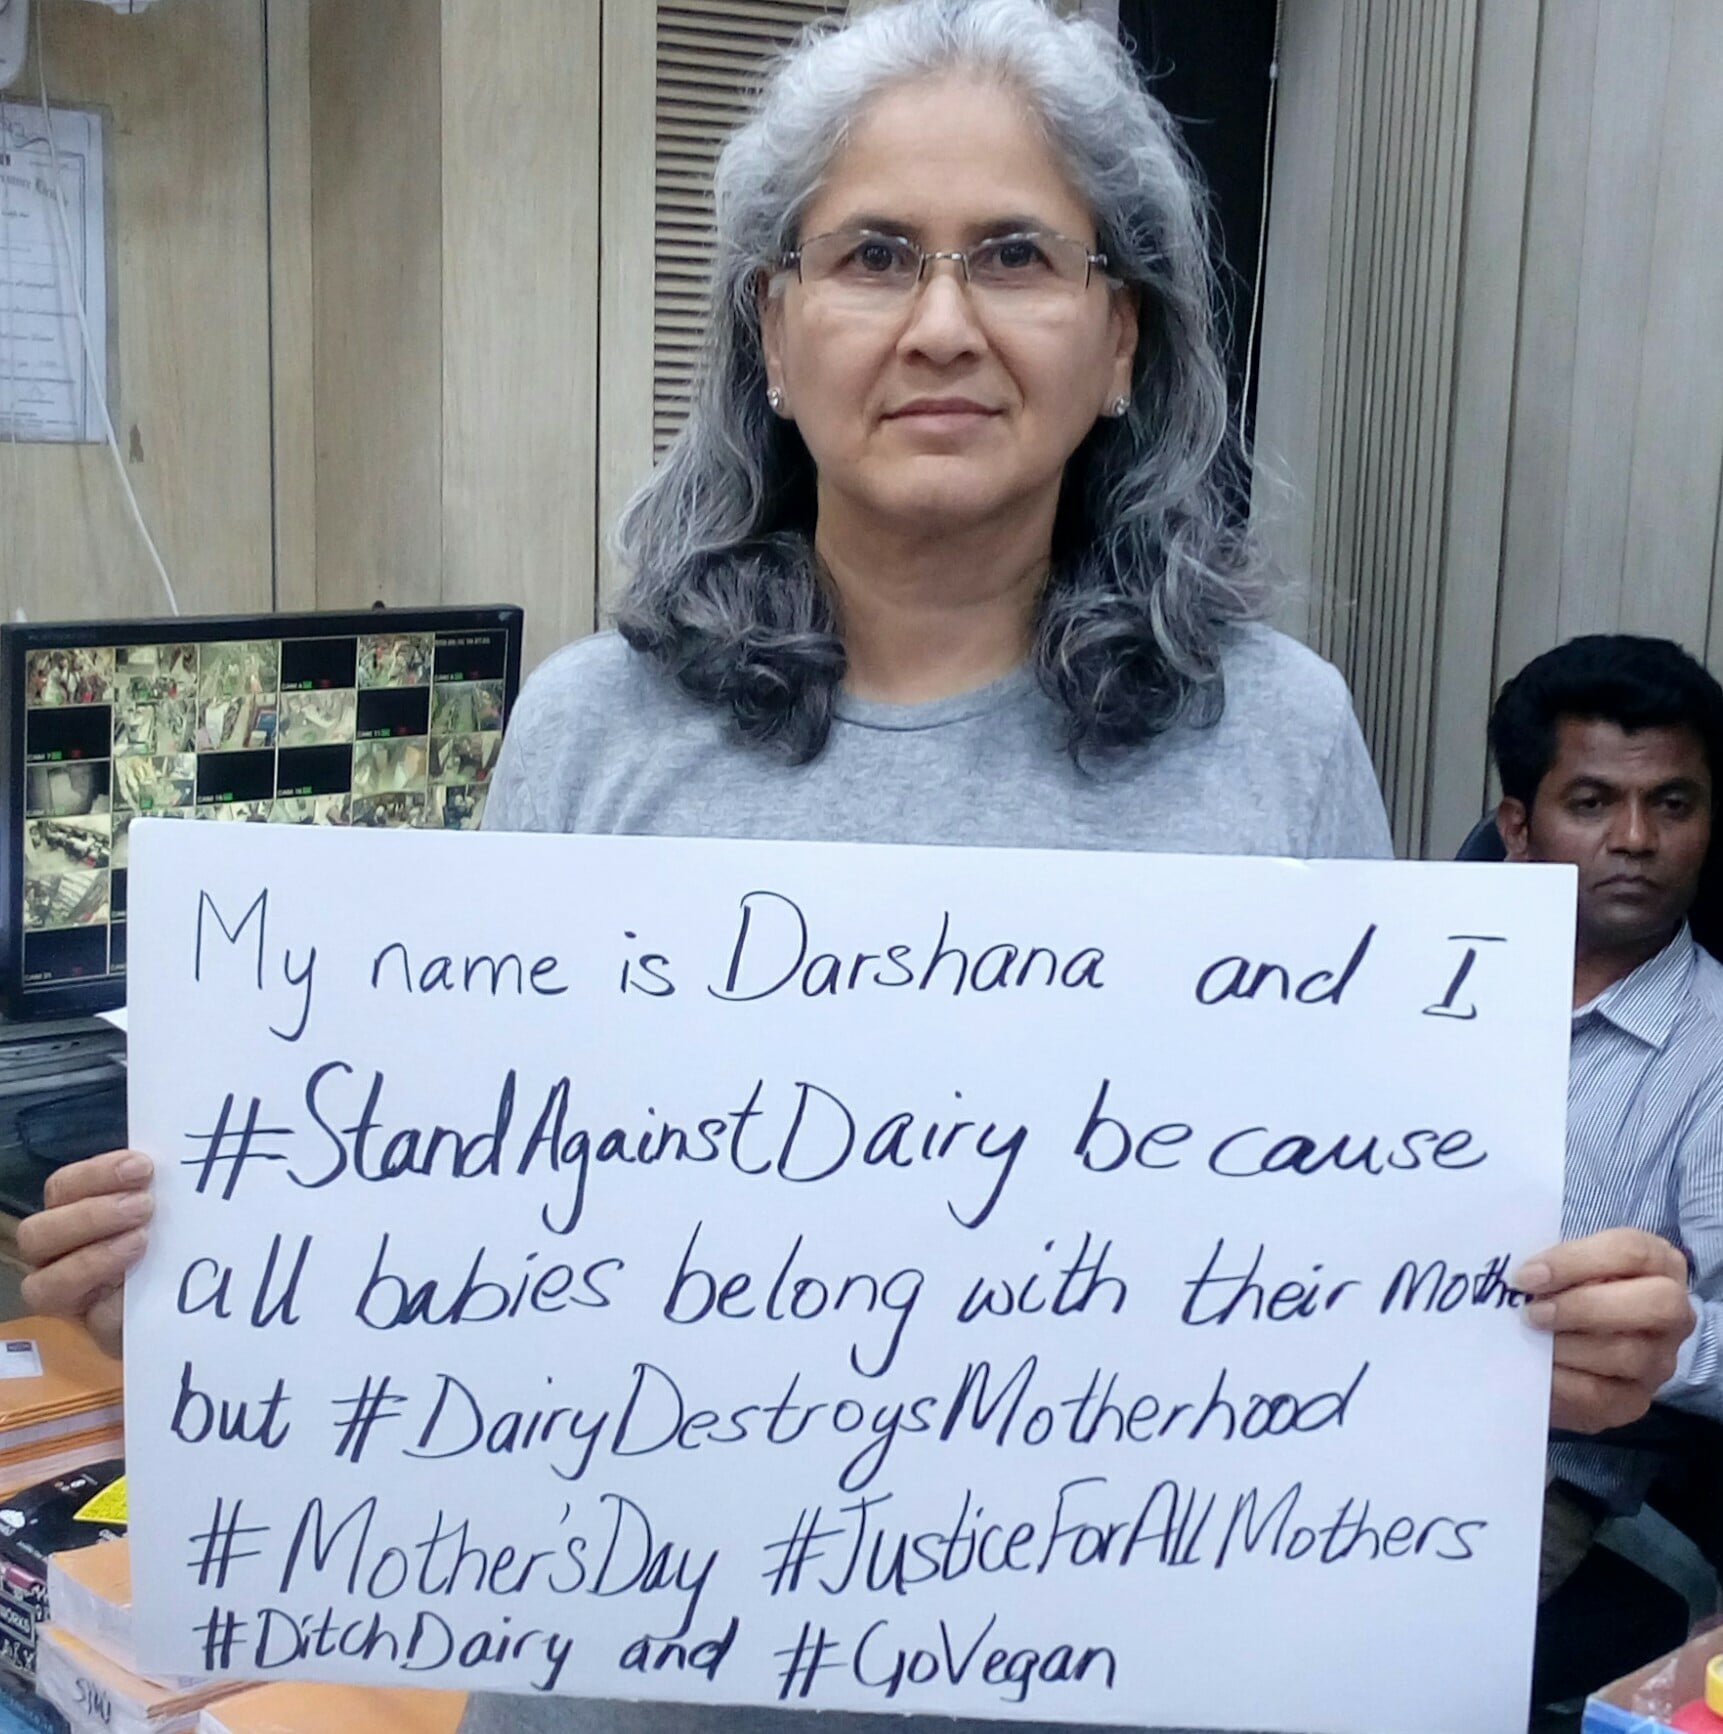 My name is Darshana and I
#StandAgainstDairy because
all babies belong with their Mothe
but #DairyDestroysMotherhood
#Mother'sDay #JusticeForAllMothers
#DitchDairy and #GoVegan